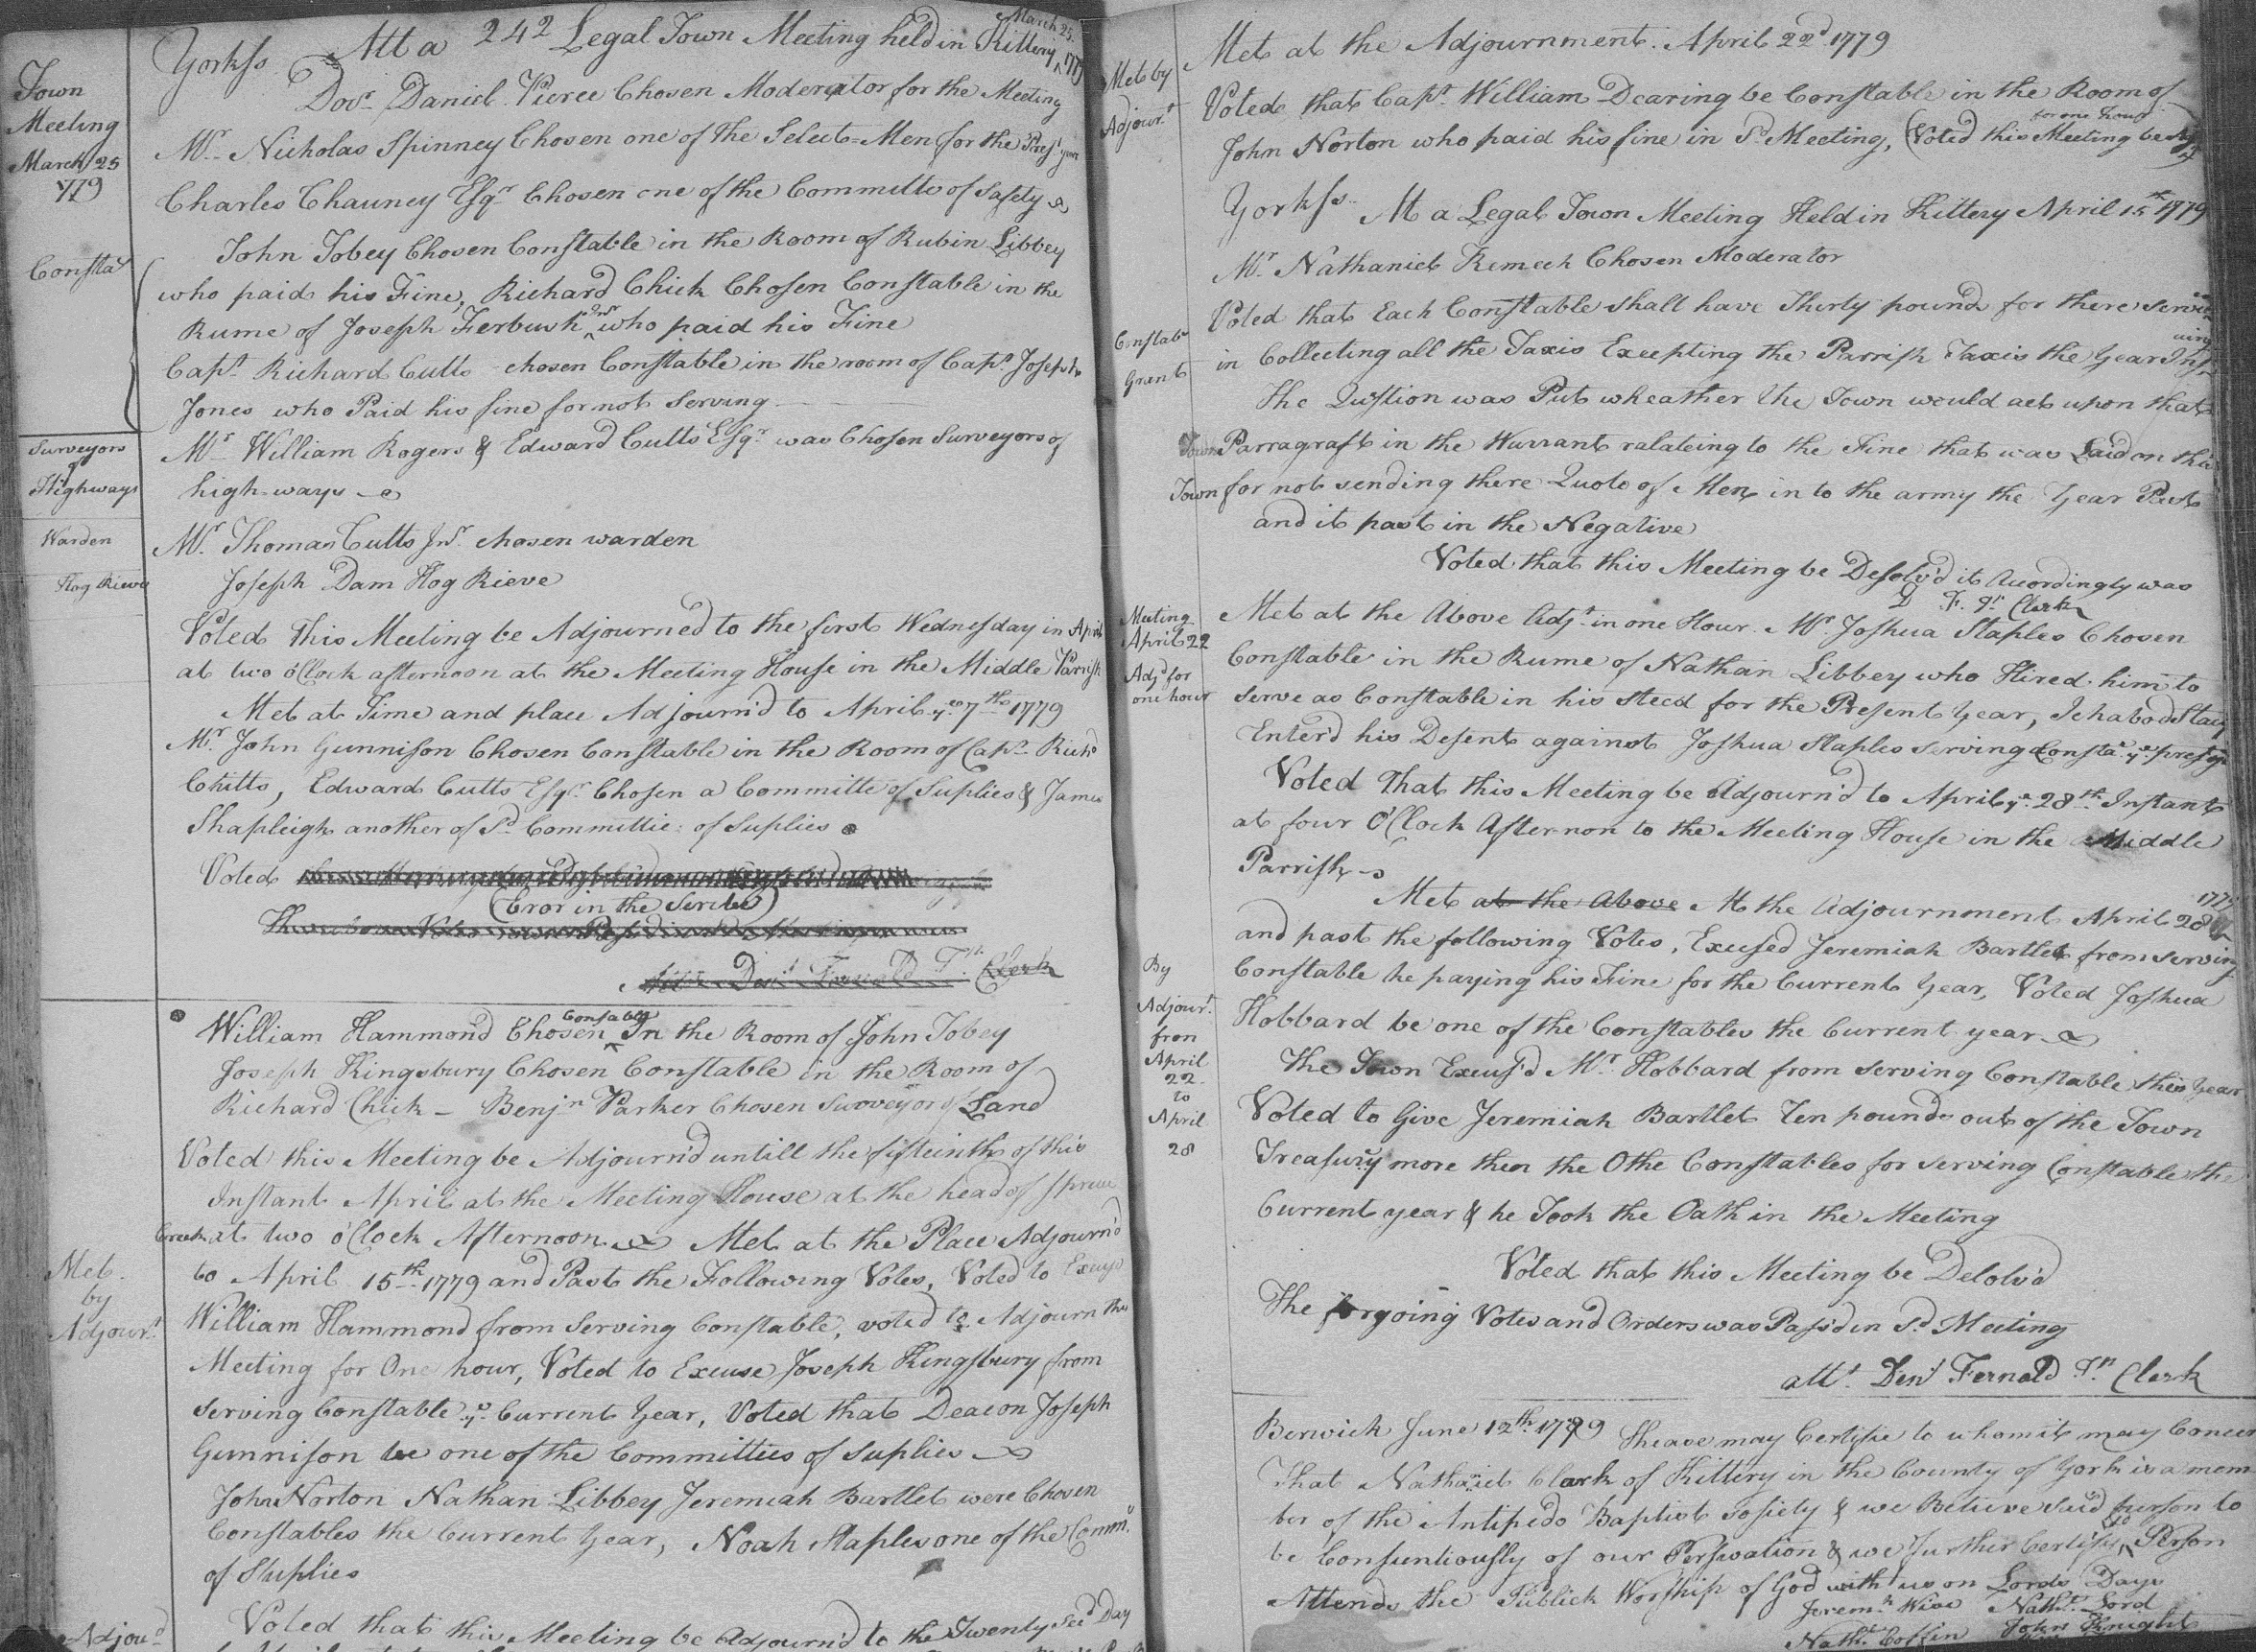 Town
Meeting
March 25
1779
Yorkss Att a 242 Legal Town Meeting held in Kittery March 25. 1779
Docr. Daniel Pierce Chosen Moderator for the Meeting
Mr. Nicholas Spinney Chosen one of the Select=Men for the Prest year
Charles Chauncy Esqr Chosen one of the Committe of Safety
Constas
John Tobey Chosen Constable in the Room of Rubin Libbey
who paid his Fine, Richard Chick Chosen Constable in the
Rume of Joseph Ferbush Jnr who paid his Fine
Capt. Richard Cutts chosen Constable in the room of Capt. Joseph
Jones who Paid his fine for not Serving
Surveyors
of
Highways
Mr. William Rogers & Edward Cutts Esqr. was Chosen Surveyors of
high-ways
Warden
Mr. Thomas Cutts Jnr. chosen warden
Hog Rieve
Joseph Dam Hog Rieve
Voted this Meeting be Adjourned to the first Wednesday in April
at two oClock afternoon at the Meeting House in the Middle Parrish
Met at Time and place Adjourn'd to April ye 7th 1779
Mr. John Gunnison Chosen Constable in the Room of Capt. Richd
Chitts, Edward Cutts Esqr. Chosen a Committe of Suplies & James
Shapleigh another of Sd Committie: of Suplies
Voted
(Eror in the Scribe)
Attr Denl Fernald Tn. Clerk
William Hammond Chosen Constable In the Room of John Tobey
Joseph Kingsbury Chosen Constable in the Room of
Richard Chick - Benjn Parker Chosen Surveyor of Land
Voted this Meeting be Adjourn'd untill the fifteinth of this
Instant April at the Meeting House at the head of Spruce
Creek at two oClock Afternoon Met at the Place Adjourn'd
Met
by
Adjourt.
to April 15th 1779 and Past the Following Votes, Voted to Excuse
William Hammond from Serving Constable, voted to Adjourn this
Meeting for One hour, Voted to Excuse Joseph Kingsbury from
Serving Constable ye Current Year, Voted that Deacon Joseph
Gunnison be one of the Committies of Suplies
John Norton Nathan Libbey Jeremiah Bartlet were Chosen
Constables the Current Year, Noah Staples one of the Commt.
of Suplies
Adjoud
Voted that this Meeting be Adjourn'd to the Twenty Secd Day
Met by
Adjourt
Met at the Adjournment. April 22d 1779
Voted that Capt. William Dearing be Constable in the Room of
John Norton who paid his fine in Sd Meeting, (Voted this Meeting be Adjd for one hour
Yorkss. At a Legal Town Meeting Held in Kittery April 15th 1779
Mr. Nathaniel Remeck Chosen Moderator
Constabs
Grant
Voted that Each Constable shall have Thirty pounds for there Service
in Collecting all the Taxis Excepting the Parrish Taxis the Year Insuing
The Qustion was Put wheather the Town would act upon that
Parragraft in the Warrant ralateing to the Fine that was Laid on this
Town for not sending there Quoto of Men in to the army the Year Past
and it past in the Negative
Voted that this Meeting be Desolv'd it Acordingly was
D F. Tn Clerk
Meeting
April 22
Adjd for
one hour
Met at the Above Adjt in one Hour. Mr. Joshua Staples Chosen
Constable in the Rume of Nathan Libbey who Hired him to
serve as Constable in his steed for the Present Year, Ichabod Stacy
Enter'd his Desent against Joshua Staples serving Consta. ye prest yr
Voted That this Meeting be Adjourn'd to April ye 28th Instant
at four O'Clock Afternon to the Meeting House in the Middle
Parrish
Met at the Above At the Adjournment April 28th 1779
By
Adjourt.
from
April
22
to
April
28
and past the following Votes, Excused Jeremiah Bartlet from serving
Constable he paying his Fine for the Current Year, Voted Joshua
Hobbard be one of the Constables the Current year
The Town Excus'd Mr Hobbard from serving Constable this Year
Voted to Give Jeremiah Bartlet Ten pounds out of the Town
Treasury more then the Othe Constables for serving Constable the
Current year & he Took the Oath in the Meeting
Voted that this Meeting be Delolv'd
The forgoing Votes and Orders was Pass'd in Sd Meeting
attr. Denl Fernald Tn Clerk
Berwick June 12th 1779 Theas may Certifie to whom it may Concer
That Nathaniel Clark of Kittery in the County of York is a mem
ber of the Antipedo Baptist Sosiety & we Believe said person to
be Consuntiously of our Perswation & we further Certify sd Person
Attends the Publick Worship of God with us on Lords Days
Jeremh Wise Nathl Lord
Nathl. Coffin John Knight